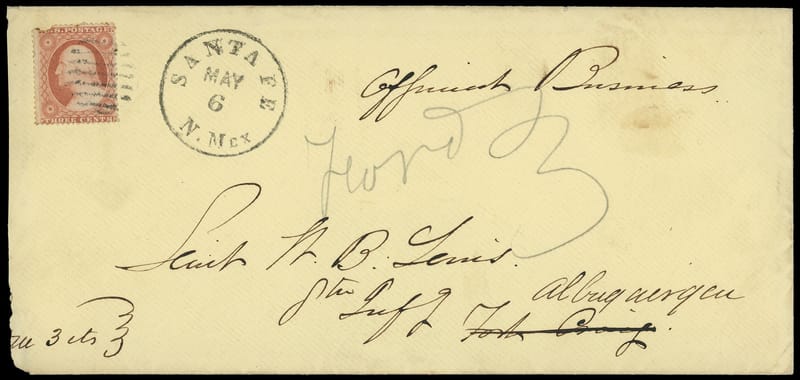 U.S. POSTAGE
THREE CENTS
SANTA FE
MAY
6
N. Mex
Official Business
Ford 3
Lieut W. B. Lewis.
8th Inf y
Albuquerque
Fort Craig.
3 cts 3
3